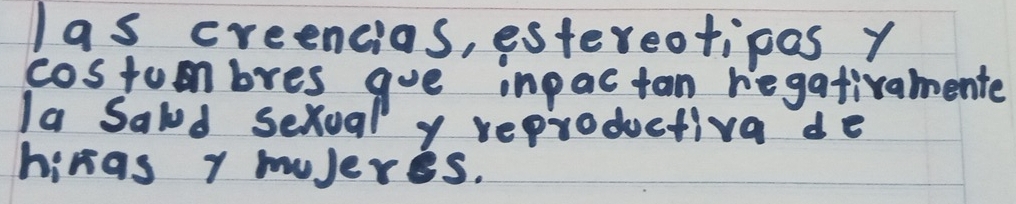 las creencias, estereotipos y
costumbres que inpactan negativamente
la Salud sexual y reproductiva de
niñas y mujeres.